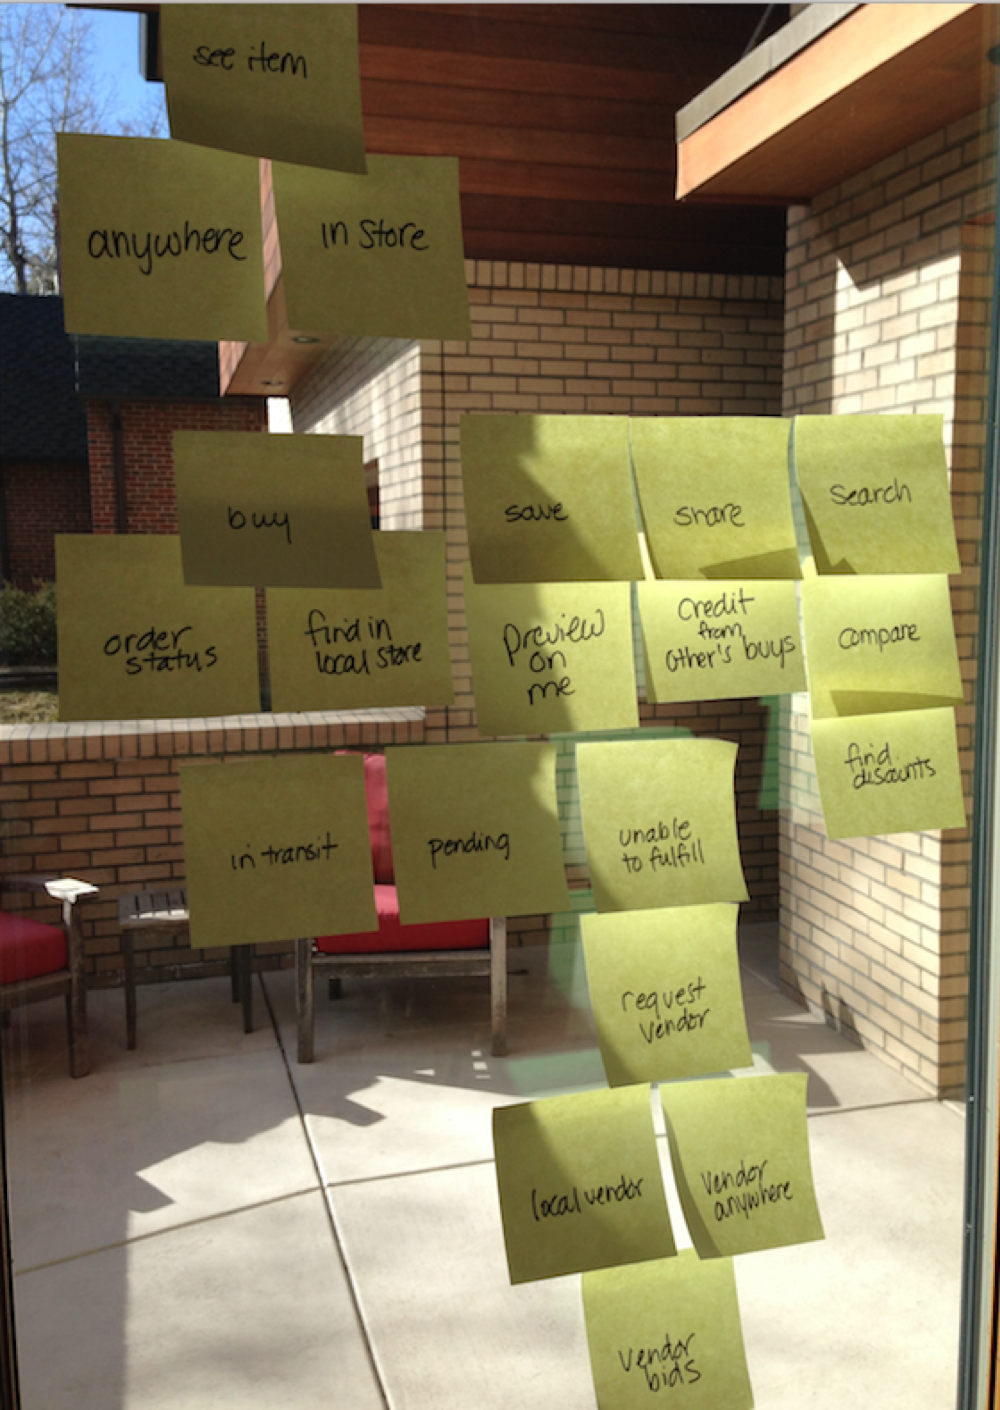 see item
anywhere
in store
buy
save
share
search
order
status
find in
local store
Preview
on
me
Credit
from
other's buys
compare
find
discounts
in transit
pending
unable
to fulfill
request
vendor
local vendor
vendor
anywhere
vendor
bids